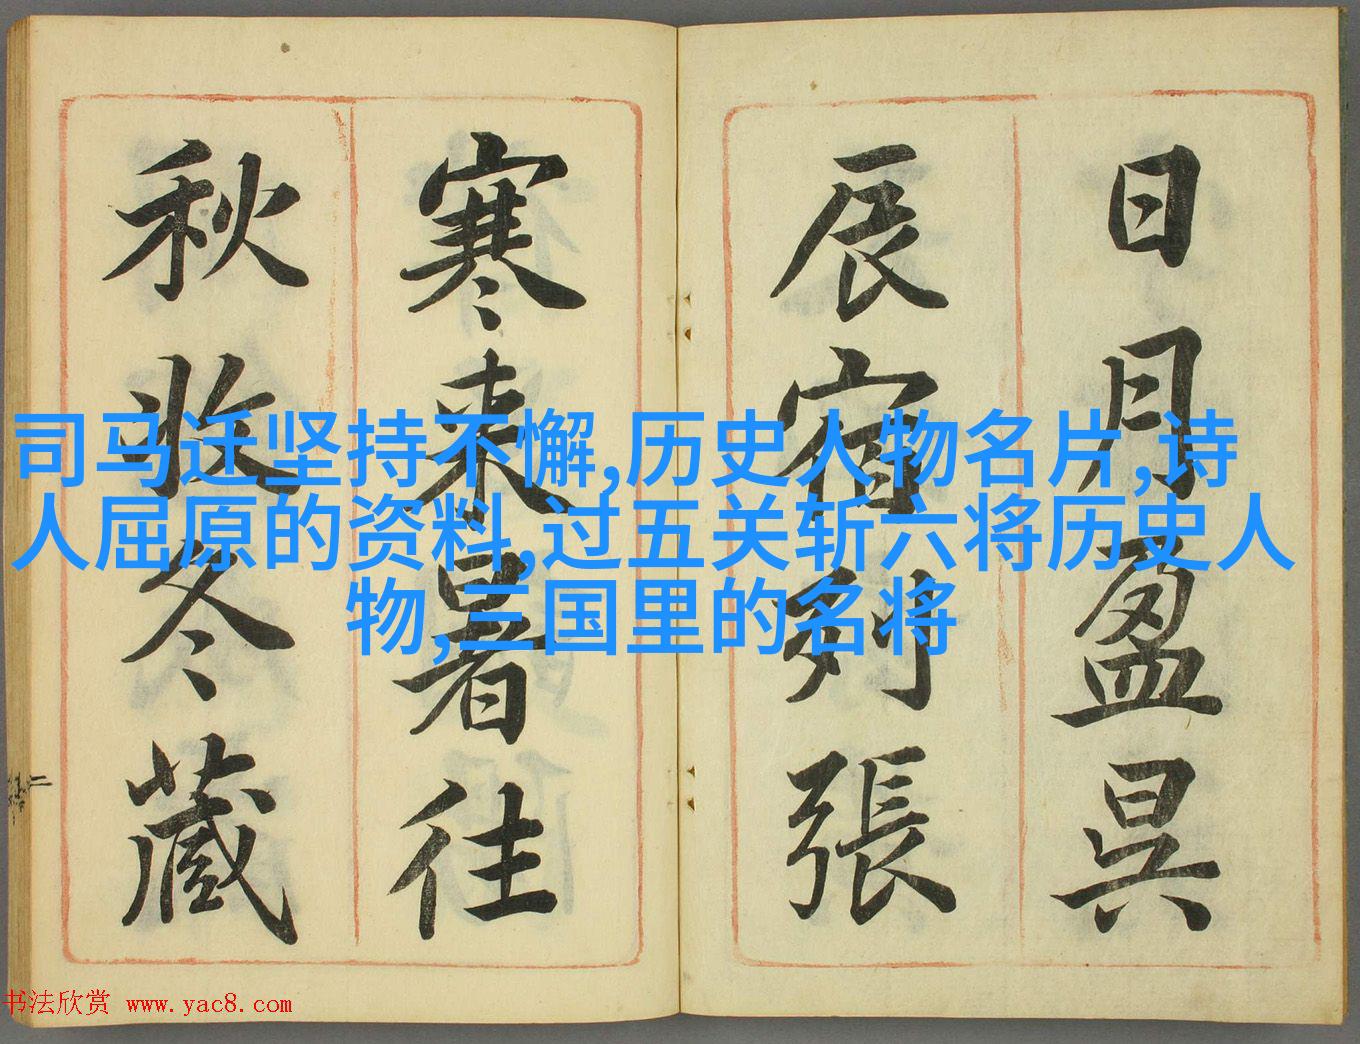 日月盈昃
辰宿列張
寒来暑往
秋收冬藏
司马迁坚持不懈,历史人物名片,诗
人屈原的资料,过五关斩六将历史人
物,三国里的名将
书法欣赏 www.yac8.com